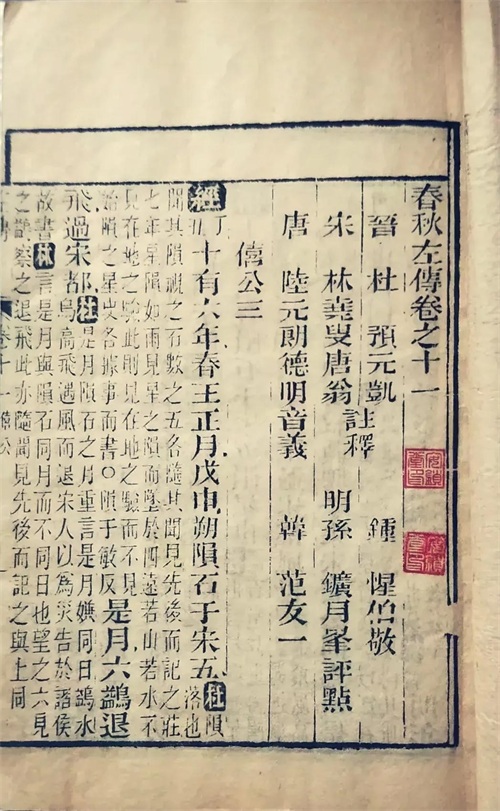 春秋左傳卷之十一
晉 杜 預元凱 鍾 惺伯敬
註釋
宋 林堯叟唐翁 明孫 鑛月峯評點
唐 陸元朗德明音義 韓 范友一
僖公三
經十有六年春王正月戊申朔隕石于宋五杜隕落也
聞其隕視之石數之五各隨其聞見先後而記之莊
七年星隕如雨見星之隕而墜於四遠若山若水不
見在地之驗此則見在地之驗而不見
始隕之星史各據事而書○隕于敏反是月六鷁退
飛過宋都杜是月隕石之月重言是月嫌同日鷁水
鳥高飛遇風而退宋人以為災告於諸侯
故書林言是月與隕石同月而不同日也望之六見
之鷁察之退飛此亦隨聞見先後而記之與上同
卷十一 僖公